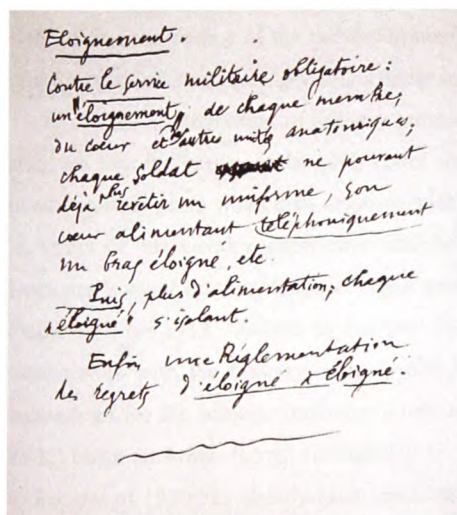 Eloignement.
Contre le service militaire obligatoire :
un "éloignement" de chaque membre,
du cœur et des autres unités anatomiques;
chaque soldat ne pouvant
déjà plus revêtir un uniforme, son
cœur alimentant téléphoniquement
un bras éloigné, etc.
Puis, plus d'alimentation; chaque
"éloigné" s'isolant.
Enfin, une Réglementation
des regrets d'éloigné à éloigné.